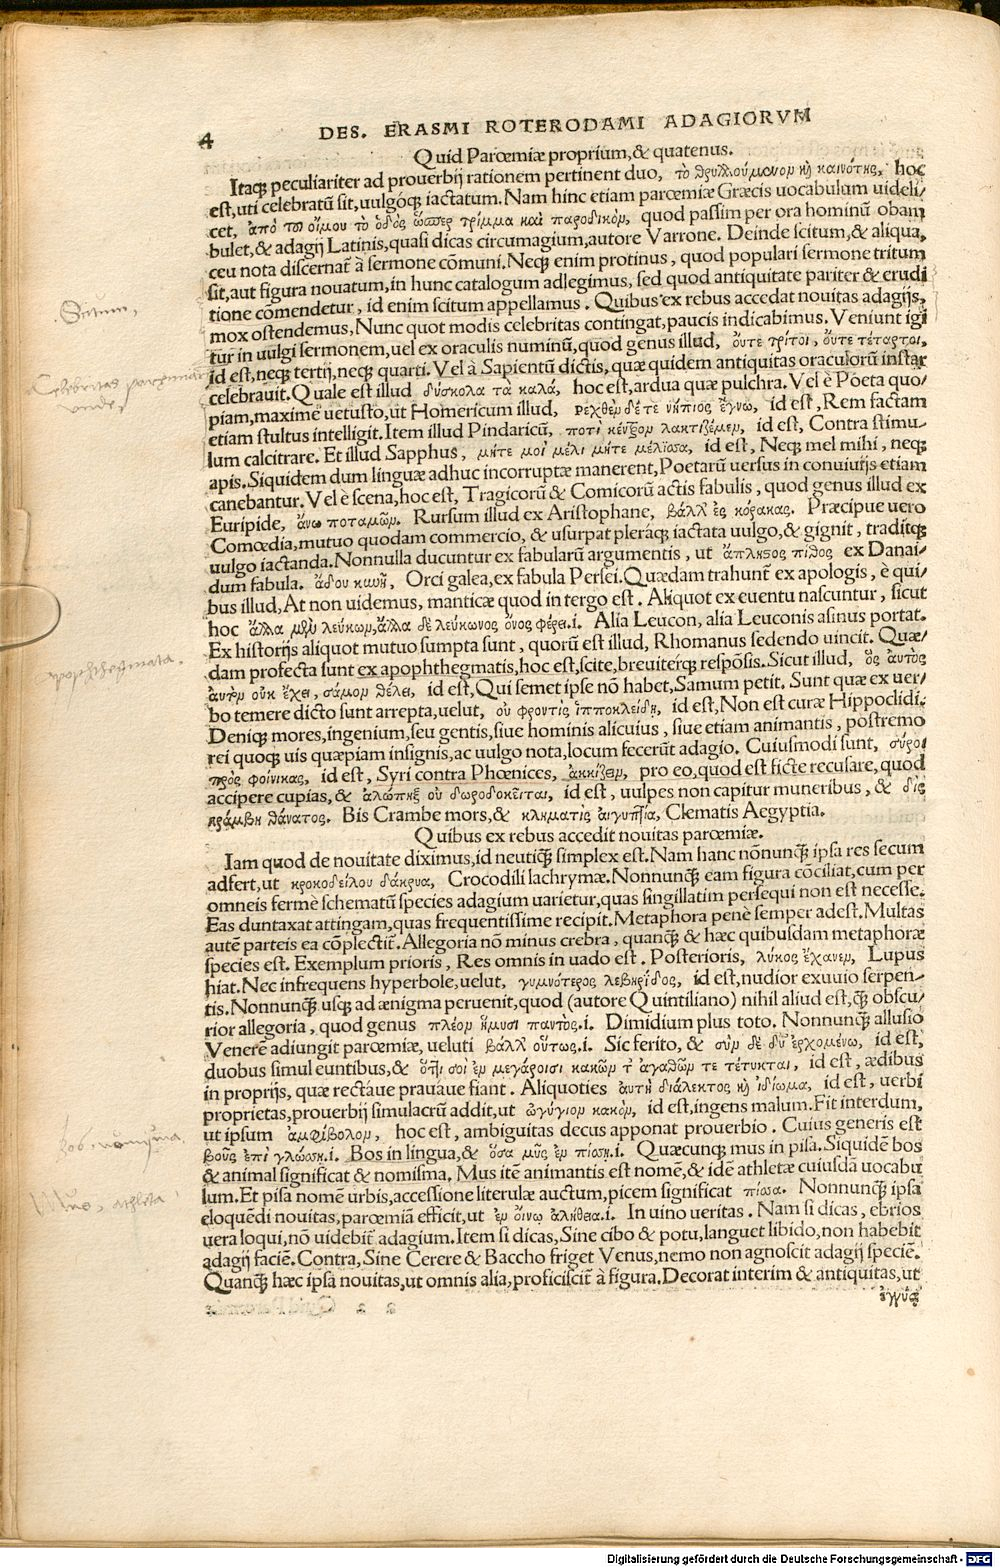 4 DES. ERASMI ROTERODAMI ADAGIORVM
Quid Parœmiæ proprium,& quatenus.
Itaq; peculiariter ad prouerbij rationem pertinent duo, τὸ θρυλλούμενον κὴ καινότης, hoc
est,uti celebratũ sit,uulgóq; iactatum. Nam hinc etiam parœmiæ Græcis uocabulum uideli/
cet, ἀπὸ τοῦ οἴμου τὸ ὁδὸς ὥσπερ τρίμμα καὶ παροδικόν, quod passim per ora hominũ obam
bulet,& adagij Latinis,quasi dicas circumagium,autore Varrone. Deinde scitum,& aliqua,
ceu nota discernat̃ à sermone cõmuni.Neq; enim protinus , quod populari sermone tritum
sit,aut figura nouatum,in hunc catalogum adlegimus, sed quod antiquitate pariter & erudi
tione cõmendetur , id enim scitum appellamus . Quibus ex rebus accedat nouitas adagijs,
mox ostendemus,Nunc quot modis celebritas contingat,paucis indicabimus. Veniunt igi
tur in uulgi sermonem,uel ex oraculis numinũ,quod genus illud, οὔτε τρίτοι , οὔτε τέταρτοι,
id est,neq; tertij,neq; quarti. Vel à Sapientũ dictis,quæ quidem antiquitas oraculorũ instar
celebrauit.Quale est illud δύσκολα τὰ καλά, hoc est,ardua quæ pulchra. Vel è Pöeta quo/
piam,maximè uetusto,ut Homericum illud, ῥεχθὲν δέ τε νήπιος ἔγνω, id est , Rem factam
etiam stultus intelligit.Item illud Pindaricũ, ποτὶ κέντρον λακτιζέμεν, id est, Contra stimu/
lum calcitrare. Et illud Sapphus , μήτε μοὶ μέλι μήτε μέλισσα, id est , Neq; mel mihi , neq;
apis.Siquidem dum linguæ adhuc incorruptæ manerent,Poetarũ uersus in conuiuijs etiam
canebantur. Vel è scena,hoc est, Tragicorũ & Comicorũ actis fabulis , quod genus illud ex
Euripide, ἄνω ποταμῶν. Rursum illud ex Aristophane, βάλλ᾽ ἐς κόρακας. Præcipue uero
Comœdia,mutuo quodam commercio, & usurpat pleraq; iactata uulgo,& gignit , traditq;
uulgo iactanda.Nonnulla ducuntur ex fabularũ argumentis , ut ἄπληστος πίθος ex Danai/
dum fabula. ἄδου κυνῆ, Orci galea,ex fabula Persei.Quædam trahunt̃ ex apologis , è qui/
bus illud,At non uidemus, manticæ quod in tergo est. Aliquot ex euentu nascuntur , sicut
hoc ἄλλα μὲν λεύκων,ἄλλα δὲ λεύκωνος ὄνος φέρει.i. Alia Leucon, alia Leuconis asinus portat.
Ex historijs aliquot mutuo sumpta sunt , quorũ est illud, Rhomanus sedendo uincit. Quæ/
dam profecta sunt ex apophthegmatis,hoc est,scite,breuiterq; respõsis.Sicut illud, ὃς αὐτὸς
αὑτὸν οὐκ ἔχει , σάμον θέλει, id est,Qui semet ipse nõ habet,Samum petit. Sunt quæ ex uer/
bo temere dicto sunt arrepta,uelut, οὐ φροντὶς ἱπποκλείδῃ, id est,Non est curæ Hippoclidi.
Deniq; mores,ingenium,seu gentis,siue hominis alicuius , siue etiam animantis , postremo
rei quoq; uis quæpiam insignis,ac uulgo nota,locum fecerũt adagio. Cuiusmodi sunt, σύροι
πρὸς φοίνικας, id est , Syri contra Phœnices, ἀκκίζειν, pro eo,quod est ficte recusare,quod
accipere cupias,& ἀλώπηξ οὐ δωροδοκεῖται, id est , uulpes non capitur muneribus , & δὶς
κράμβη θάνατος. Bis Crambe mors,& κληματὶς αἰγυπτία, Clematis Aegyptia.
Quibus ex rebus accedit nouitas parœmiæ.
Iam quod de nouitate diximus,id neutiq̃ simplex est. Nam hanc nõnunq̃ ipsa res secum
adfert,ut κροκοδείλου δάκρυα, Crocodili lachrymæ. Nonnunq̃ eam figura cõciliat,cum per
omneis fermè schematũ species adagium uarietur,quas singillatim persequi non est necesse.
Eas duntaxat attingam,quas frequentissime recipit. Metaphora penè semper adest. Multas
autẽ parteis ea cõplectit̃. Allegoria nõ minus crebra , quanq̃ & hæc quibusdam metaphoræ
species est. Exemplum prioris , Res omnis in uado est . Posterioris, λύκος ἔχανεν, Lupus
hiat. Nec infrequens hyperbole,uelut, γυμνότερος λεβηρίδος, id est,nudior exuuio serpen/
tis. Nonnunq̃ usq; ad ænigma peruenit,quod (autore Quintiliano) nihil aliud est,q̃ obscu/
rior allegoria , quod genus πλέον ἥμυσι παντὸς.i. Dimidium plus toto. Nonnunq̃ allusio
Venerẽ adiungit parœmiæ, ueluti βάλλ᾽ οὕτως.i. Sic ferito, & σὺν δὲ δύ᾽ ἐρχομένω, id est,
duobus simul euntibus,& ὅττι σοὶ ἐν μεγάροισι κακῶν τ᾽ ἀγαθῶν τε τέτυκται, id est , ædibus
in proprijs, quæ rectáue prauáue fiant . Aliquoties αυτὴ διάλεκτος κὴ ἰδίωμα, id est , uerbi
proprietas,prouerbij simulacrũ addit,ut ὠγύγιον κακόν, id est,ingens malum.Fit interdum,
ut ipsum ἀμφίβολον, hoc est , ambiguitas decus apponat prouerbio . Cuius generis est
βοῦς ἐπὶ γλώσση.i. Bos in lingua,& ὅσα μῦς ἐν πίσσῃ.i. Quæcunq; mus in pisa. Siquidẽ bos
& animal significat & nomisma. Mus itẽ animantis est nomẽ,& idẽ athletæ cuiusdã uocabu
lum.Et pisa nomẽ urbis,accessione literulæ auctum,picem significat πίσσα. Nonnunq̃ ipsa
eloquẽdi nouitas,parœmiã efficit,ut ἐν οἴνῳ ἀλήθεια.i. In uino ueritas . Nam si dicas , ebrios
uera loqui,nõ uidebit̃ adagium.Item si dicas,Sine cibo & potu,languet libido,non habebit
adagij faciẽ.Contra,Sine Cerere & Baccho friget Venus,nemo non agnoscit adagij speciẽ.
Quanq̃ hæc ipsa nouitas,ut omnis alia,proficiscit̃ à figura.Decorat interim & antiquitas,ut
Scitum,
Apophthegmata.
Digitalisierung gefördert durch die Deutsche Forschungsgemeinschaft - DFG